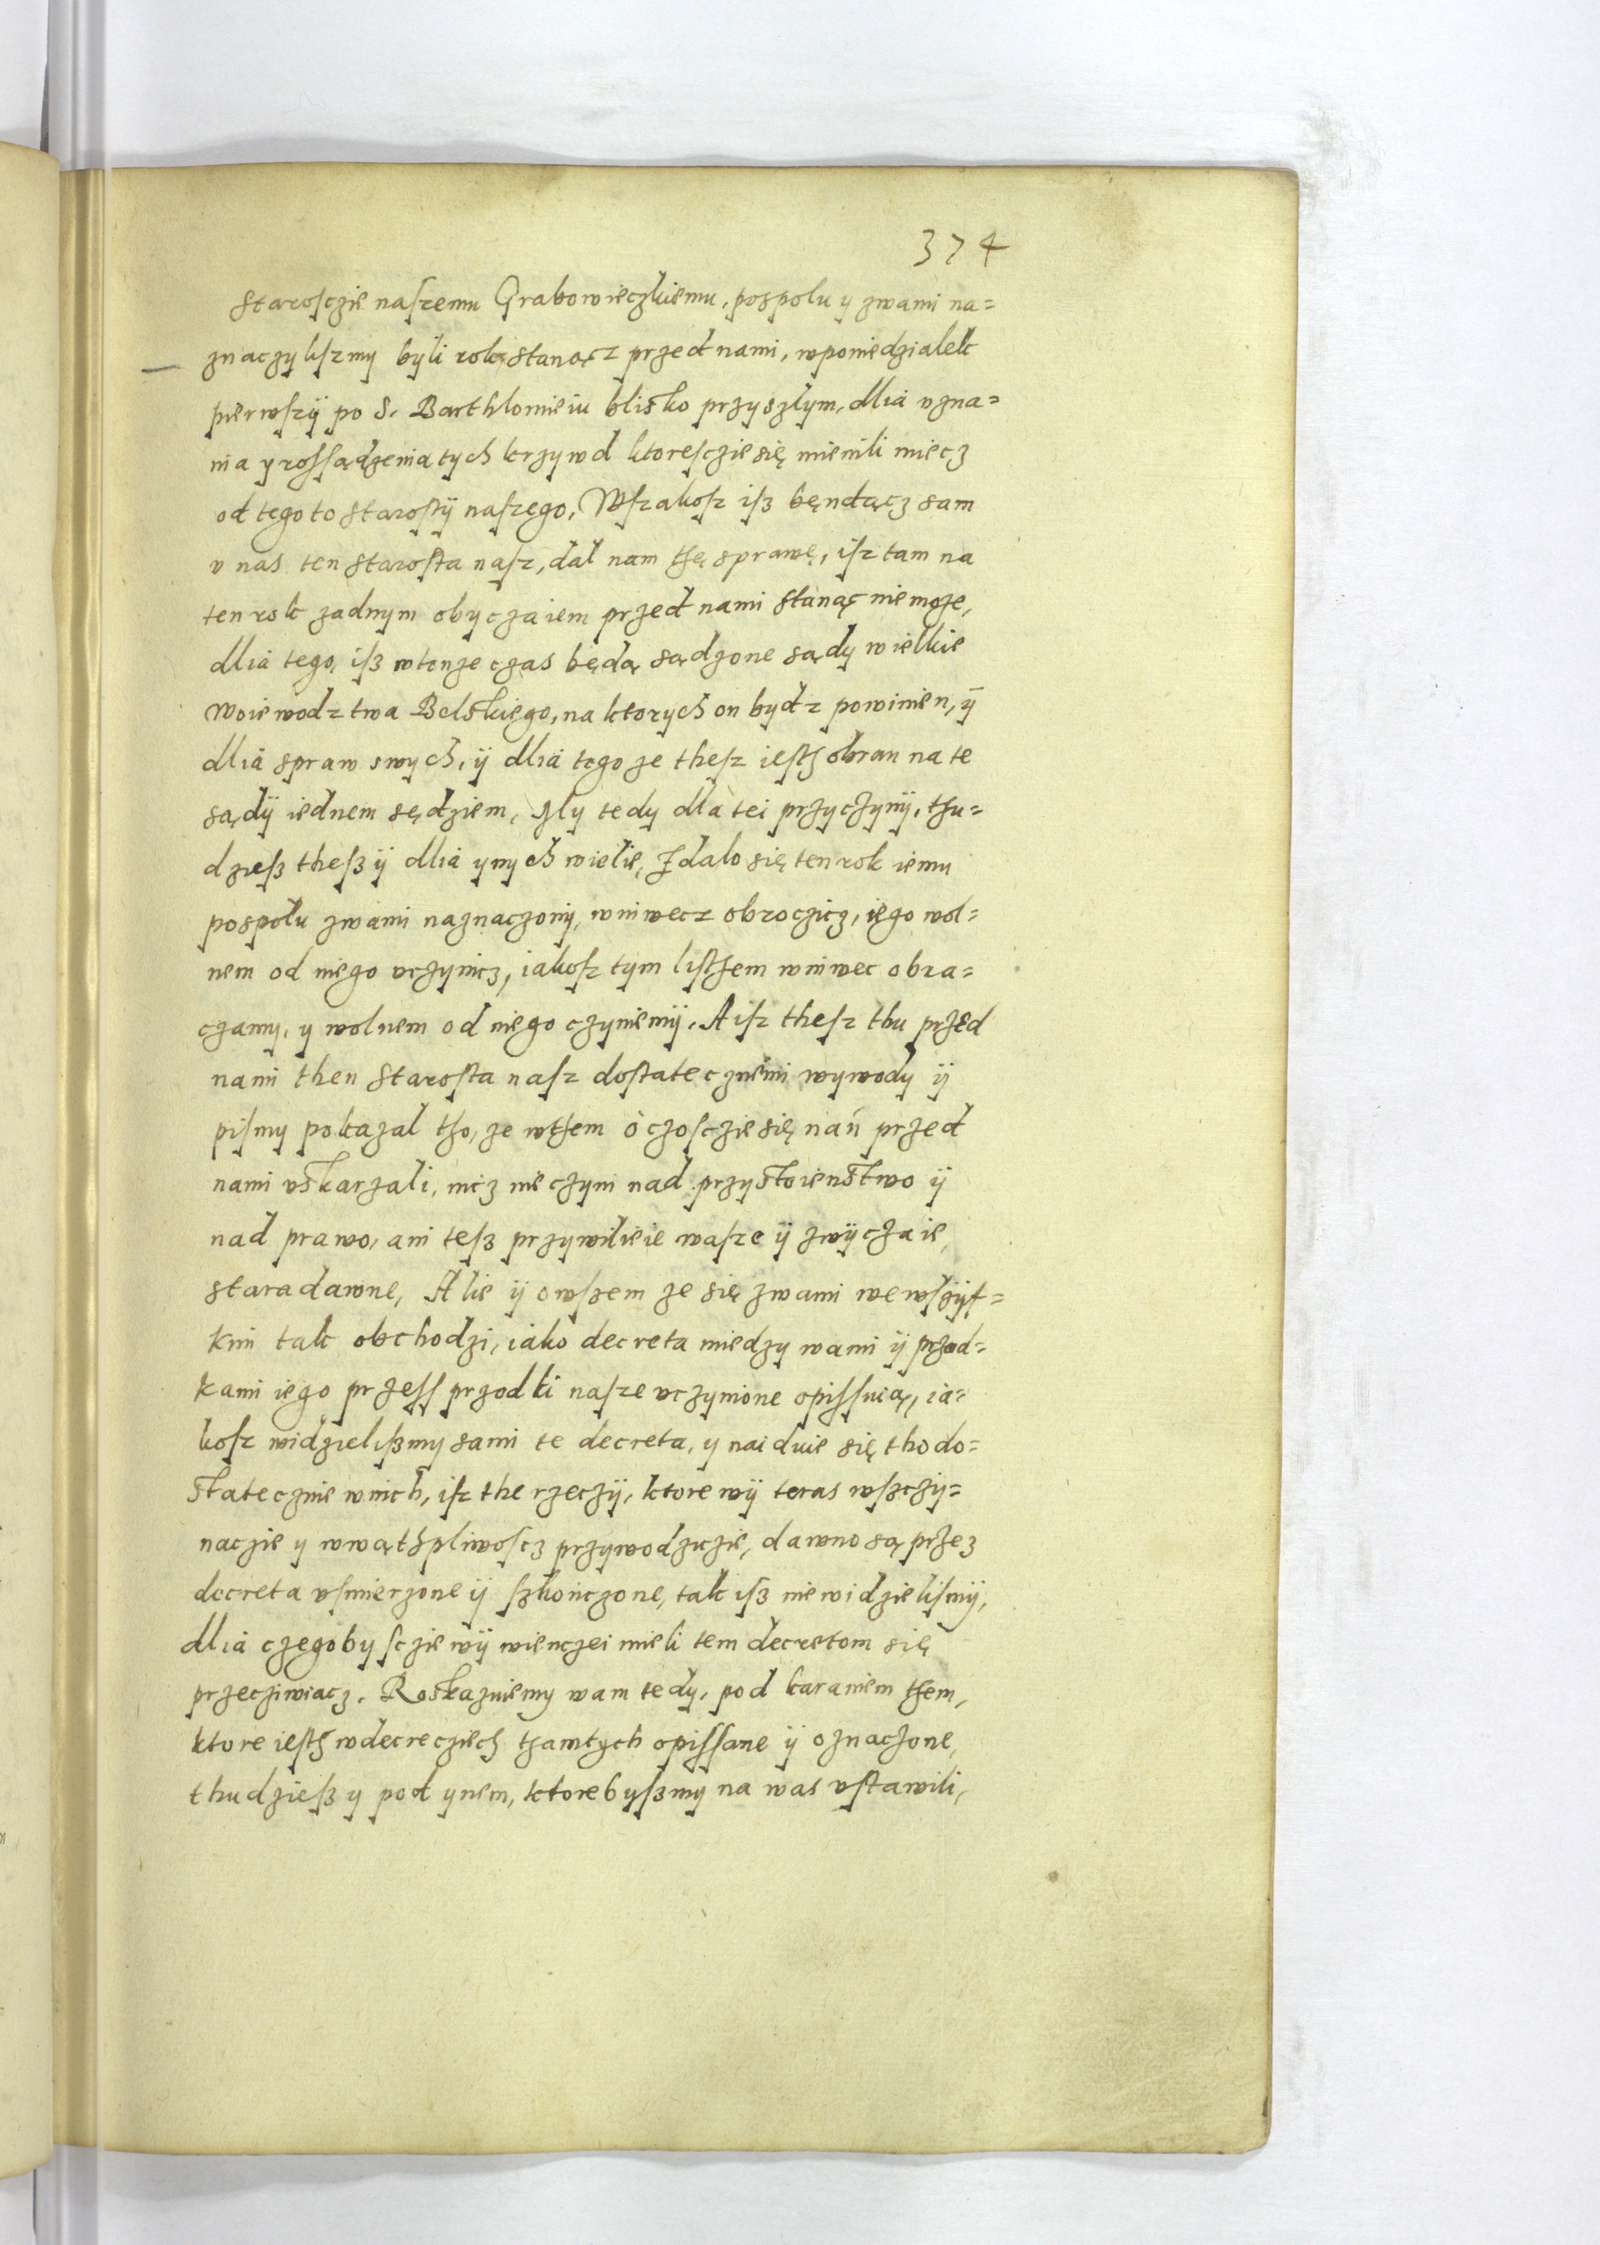 374
Starosczie naszemu Grabowieczkiemu, pospolu y zwami na=
znaczylismy byli rok, stanącz przed nami, wponiedzialek
pierwszÿ po S. Barthlomieiu blisko przyszłym, dlia vzna=
nia y rossądzenia tych krzywd ktoresczie się mienili miecz
od tego to Starostÿ naszego, Wszakosz isz będącz sam
v nas ten Starosta nasz, dał nam thę sprawę, isz tam na
ten rok zadnym obyczaiem przed nami stanąc niemoze,
dlia tego, isz wtenze czas będą sądzone sądy wielkie
woiewodztwa Belskiego, na ktorych on bydz powinien, ÿ
dlia spraw swych, ÿ dlia tego ze thesz iesth obran na te
sądÿ iednem sędziem, Jzly tedy dla tei przyczynÿ, thu=
dziesz thesz ÿ dlia ynych wielie, Zdalo się ten rok iemu
pospolu zwami naznaczony, wniwecz obroczicz, iego wol=
nem od niego vczynicz, iakosz tym listhem wniwec obra=
czamy, y wolnem od niego czyniemÿ. A isz thesz thu przed
nami then Starosta nasz dostatecznemi wywody ÿ
pismy pokazal tho, ze wthem o czosczie się nań przed
nami vskarzali, nicz nie czyni nad przystoienstwo ÿ
nad prawo, ani tesz przywilieie wasze ÿ zwÿczaie
staradawne, Alie ÿ owszem ze się zwami wewszÿt=
kim tak obchodzi, iako decreta miedzy wami ÿ przod=
kami iego przess przodki nasze vczynione opissuią, ia=
kosz widzieliszmy sami te decreta, y naiduie się tho do=
statecznie wnich, isz the rzeczÿ, ktore wÿ teras wszczÿ=
naczie y wwąthpliwoscz przywodzicie, dawno są przez
decreta vsmierzone ÿ szkończone, tak isz nie widzielismÿ,
dlia czegobysczie wÿ wienczei mieli tem decretom się
przecziwiacz. Roskazuiemy wam tedy, pod karaniem them,
ktore iesth wdecreciech thamtych opissane ÿ oznaczone,
thudziesz y pod ynem, ktorebyszmy na was vstawili,